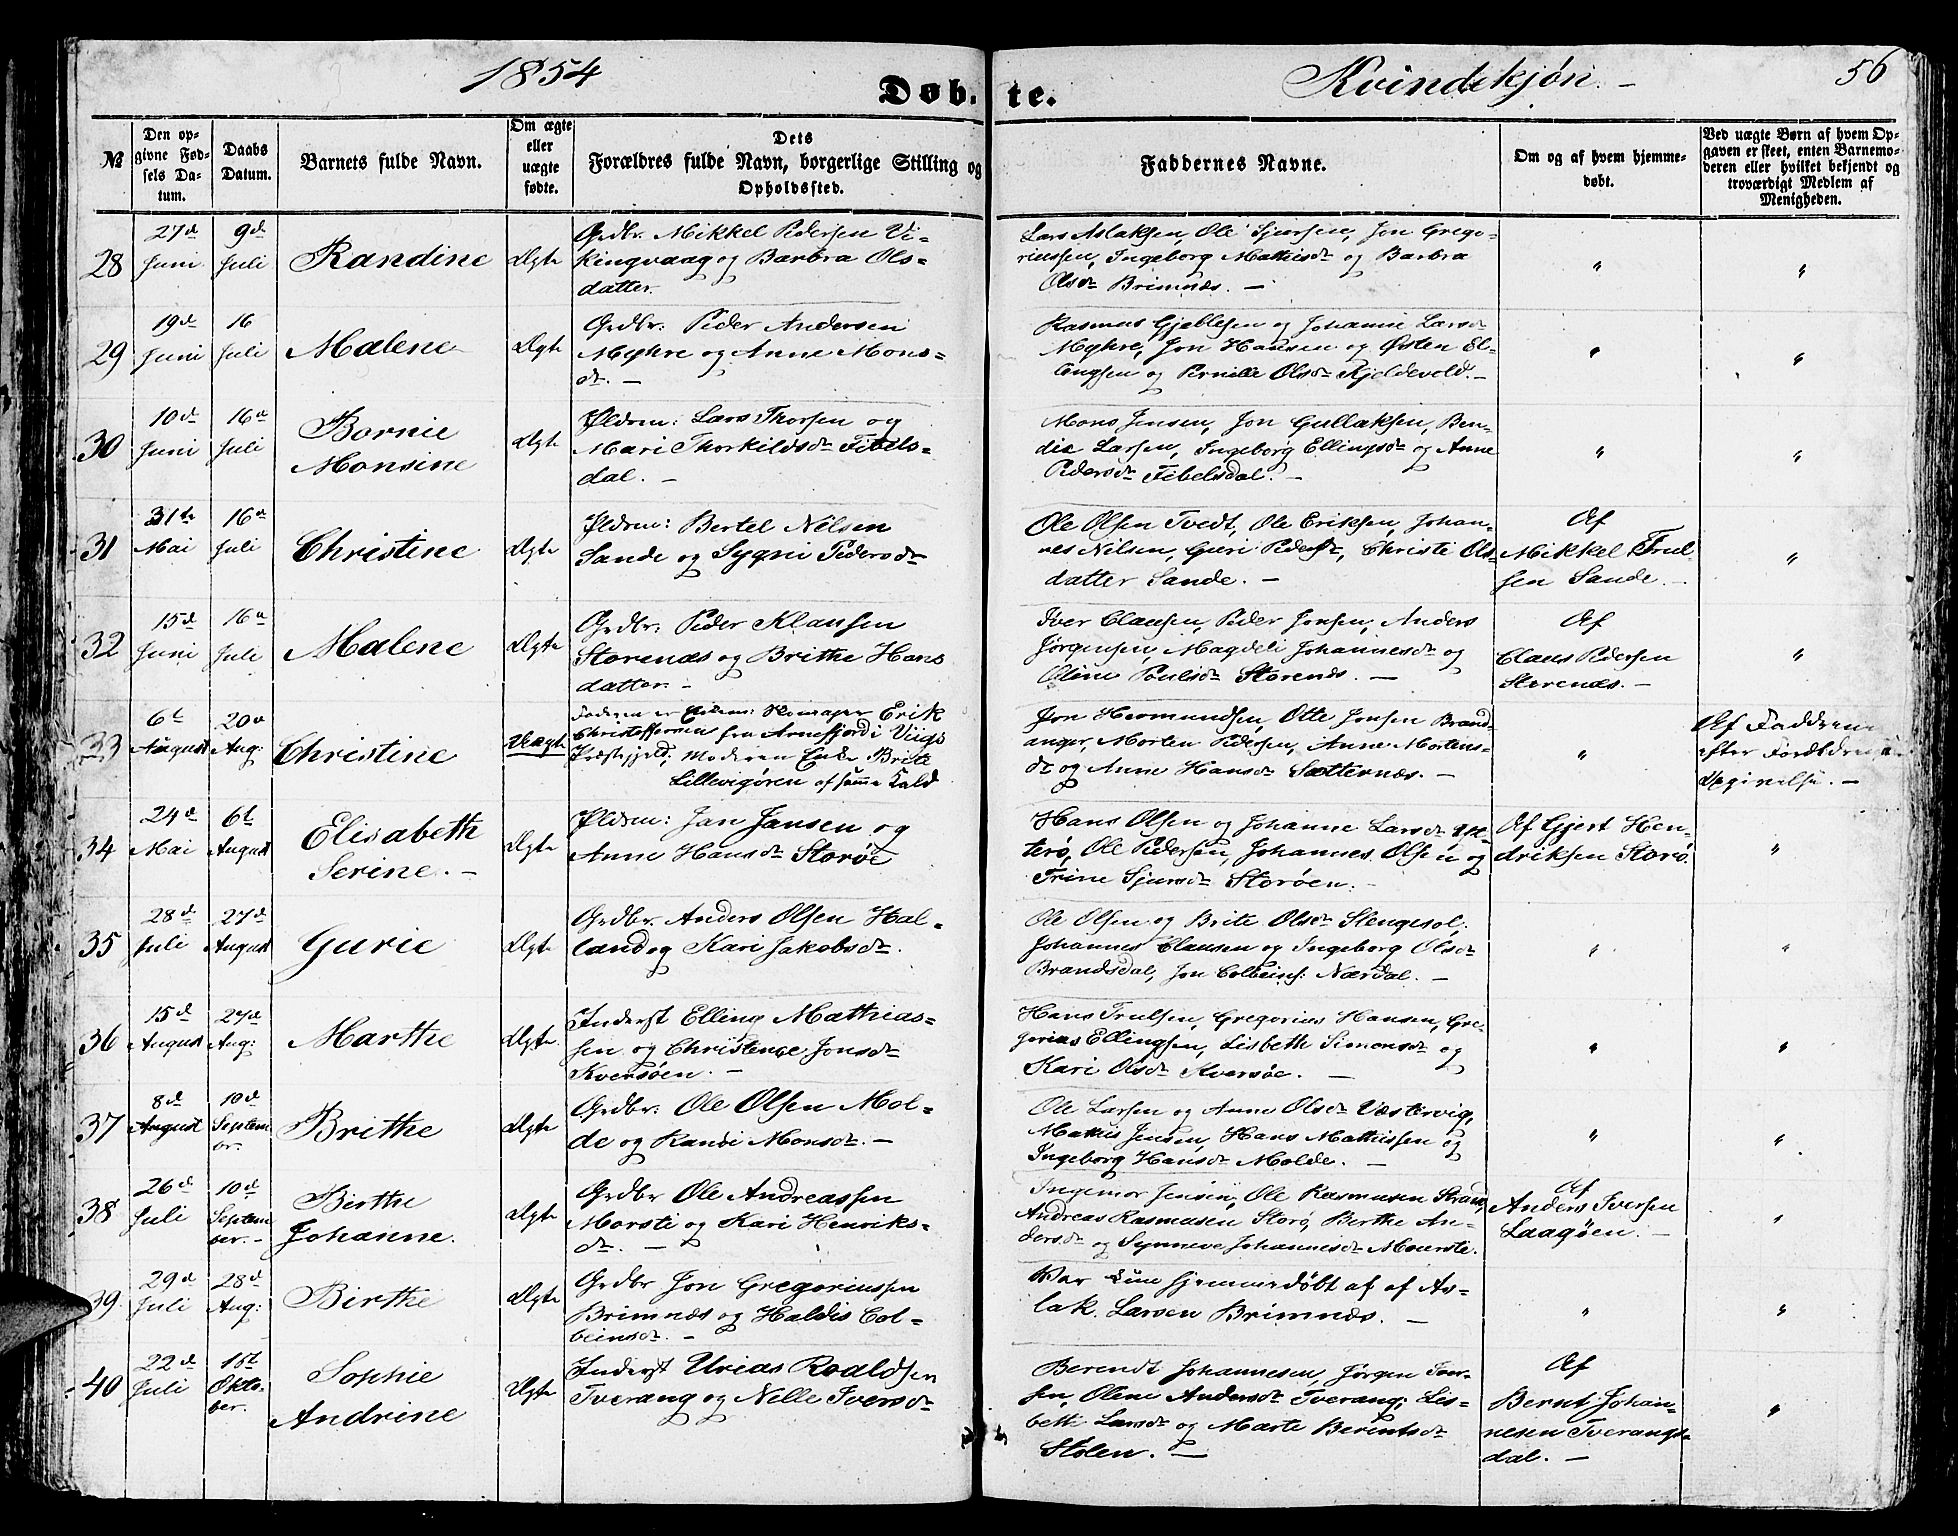 1854
Døb-te.
Kvindekjøn. –
56
№
Den opgivne Fødsels Datum.
Daabs Datum.
Barnets fulde Navn.
Om ægte eller uægte fødte.
Dets
Forældres fulde Navn, borgerlige Stilling og
Opholdssted.
Faddernes Navne.
Om og af hvem hjemmedøbt.
Ved uægte Børn af hvem Opgaven er skeet, enten Barnemoderen eller hvilket bekjendt og troværdigt Medlem af Menigheden.
28
27d Juni
9d Juli
Randine
Ægte
Grdbr. Mikkel Pedersen Vi-
kingvaag og Barbra Ols-
datter.
Lars Aslaksen, Ole Sjursen, Jon Grego-
riussen, Ingeborg Mathisdr og Barbra
Olsdr Brimnæs. –
"
"
29
19d Juni
16 Juli
Malene
Ægte
Grdbr: Peder Andersen
Myhre og Anne Mons-
dr. –
Rasmus Gjeblesen og Johanne Larsdr
Myhre, Jon Hansen og Østen El-
lingsen og Pernille Olsdr Kjeldevold. –
"
"
30
10d Juni
16d Juli
Bornie
Monsine
Ægte
Pldsm: Lars Thorsen og
Mari Thorkildsdr Fibels-
dal. –
Mons Jensen, Jon Gullaksen, Ben-
die Larsen, Ingeborg Ellingsdr og Anne
Pedersdr Fibelsdal. –
"
"
31
31te Mai
16d Juli
Christine
Ægte
Pldsm: Bertel Nilsen
Sande og Sygni Pedersdr
Ole Olsen Tvedt, Ole Eriksen, Johan-
nes Nilsen, Guri Pedersdr, Christi Ols-
datter Sande. –
Af
Mikkel Trul-
sen Sande. –
"
32
15d Juni
16d Juli
Malene
Ægte
Grdbr: Peder Klausen
Storenæs og Brithe Hans
datter. –
Iver Clausen, Peder Jonsen, Anders
Jørgensen, Magdeli Johannesdr og
Oline Poulsdr Storenæs. –
Af
Claus Pedersen
Storenæs. –
"
33
6te August
20d Aug:
Christine
Uægte
Faderen er Erik
Christoffersen fra Arnefjord i Viigs
Præstegjeld; Moderen Enke Brite
Lillevigøren af samme Kald
Jon Hermundsen, Otte Jonsen Brand-
anger, Morten Pedersen, Anne Mortens-
dr og Anne Hansdr Sætternæs. –
"
Af Faddrene
efter Forældrenes
Opgivelse. –
34
24d Mai
6te August
Elisabeth
Serine. –
Ægte
Pldsm: Jan Jansen og
Anne Hansdr Storøe
Hans Olsen og Johanne Larsdr
Ole Pedersen, Johannes Olsen og
Trine Sjursdr Storøen. –
Af Gjert Hen-
driksen Storø.
"
35
28d Juli
27d August
Gurie
Ægte
Grdbr. Anders Olsen Hal-
land og Kari Jakobsdr.
Ole Olsen og Brite Olsdr Slengesol,
Johannes Clausen og Ingeborg Olsdr
Brandsdal, Jon Colbeins: Nærdal. –
"
"
36
15d August
27d Aug:
Marthe
Ægte
Inderst Elling Mathias-
sen og Christence Jonsdr
Kversøen. –
Hans Trulsen, Gregorius Hansen, Gre-
gorius Ellingsen, Lisbeth Simonsdr og
Kari Olsdr Kversøe. –
"
"
37
8d August
10d September.
Brithe
Ægte
Grdbr: Ole Olsen Mol-
de og Randi Monsdr. –
Ole Larsen og Anne Olsdr Væstervig,
Mathis Jensen, Hans Mathissen og
Ingeborg Hansdr Molde. –
"
"
38
26d Juli
10d September. –
Birthe
Johanne.
Ægte
Grdbr Ole Andreassen
Morsti og Kari Henriks-
dr. –
Ingemor Jensen, Ole Rasmusen Strand,
Andreas Rasmusen Storø, Berthe An-
dersdr og Synneve Johannesdr Mourste.
Af
Anders Iversen
Laagøen. –
"
39
29d Juli
28d Aug:
Birthe
Ægte
Grdbr Jon Gregoriussen
Brimnæs og Haldis Col-
beinsdr. –
Var kun hjemmedøbt af af As-
lak Larsen Brimnæs. –
"
"
40
22d Juli
1st Oktober.
Sophie
Andrine
Ægte
Inderst Urias Roaldsen
Tverang og Nelle Iversdr
Berendt Johannesen, Jørgen Iver-
sen, Oline Andersdr Tverang, Lis-
beth Larsdr og Marte Berentsdr
Stølen. –
Af
Bernt Johan-
nesen Tverangs-
dal. –
"